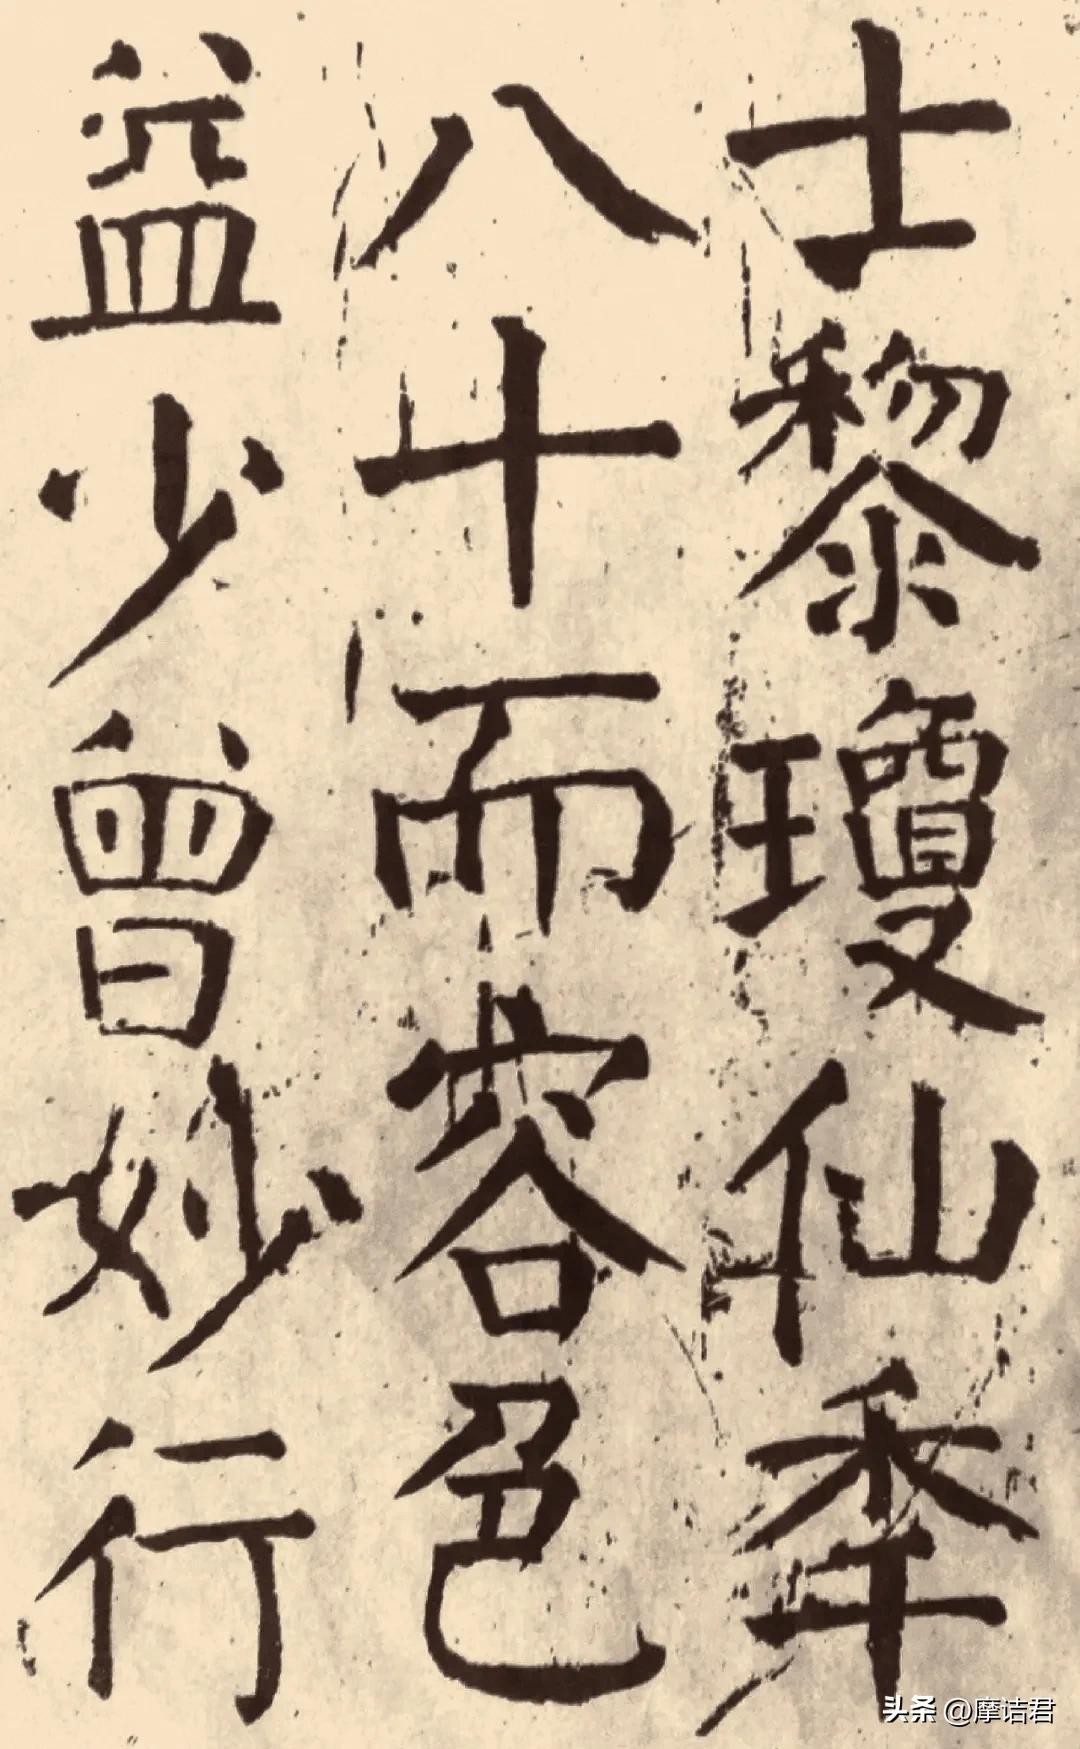 士黎瓊仙秊
八十而容色
益少曾妙行
头条 @摩诘君